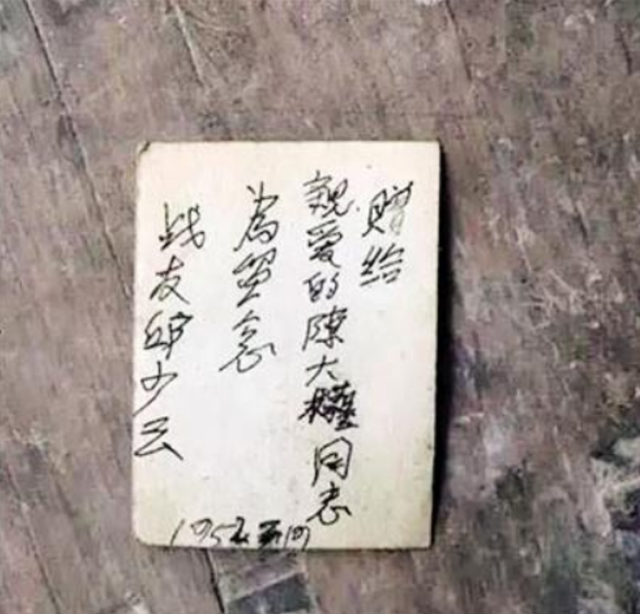 赠给
親爱的陳大權同志
為留念
战友邱少云
1952